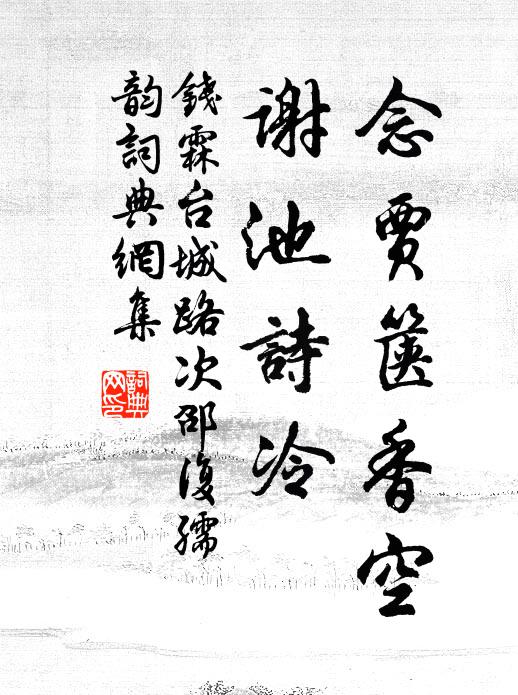 念賈篋香空
謝池詩冷
錢霖台城路次邵復孺
韵詞典網集
詞典
网印